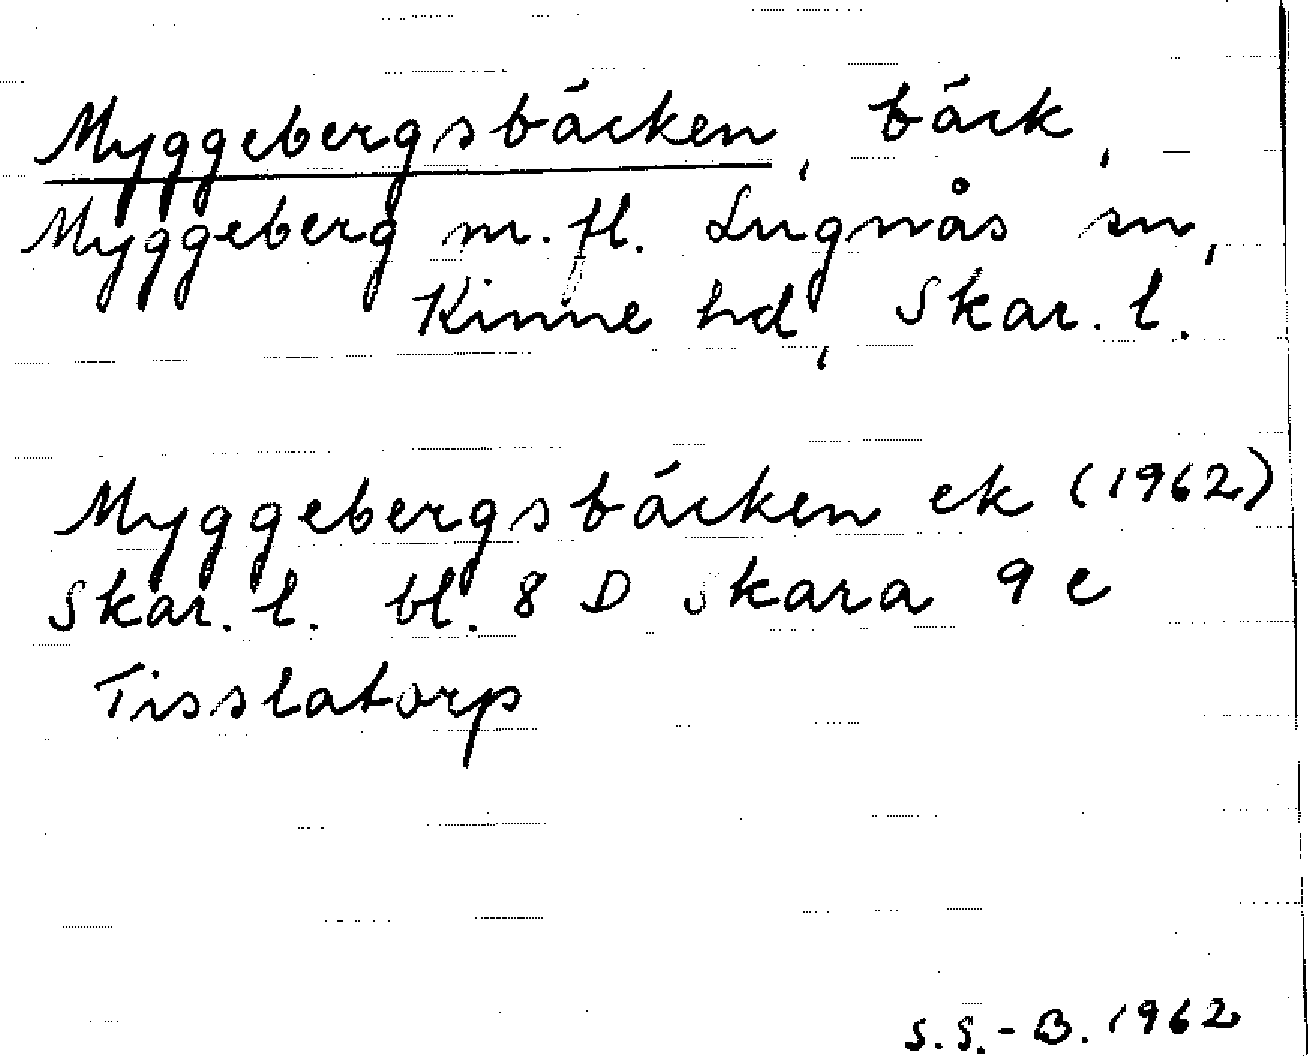 Myggebergsbäcken, bäck,
Myggeberg m.fl. Lugnås sn,
Kinne hd, Skar. l.
Myggebergsbäcken ek (1962)
Skar. l. bl. 8 D Skara 9 e
Tisslatorp
S.S.-B. 1962